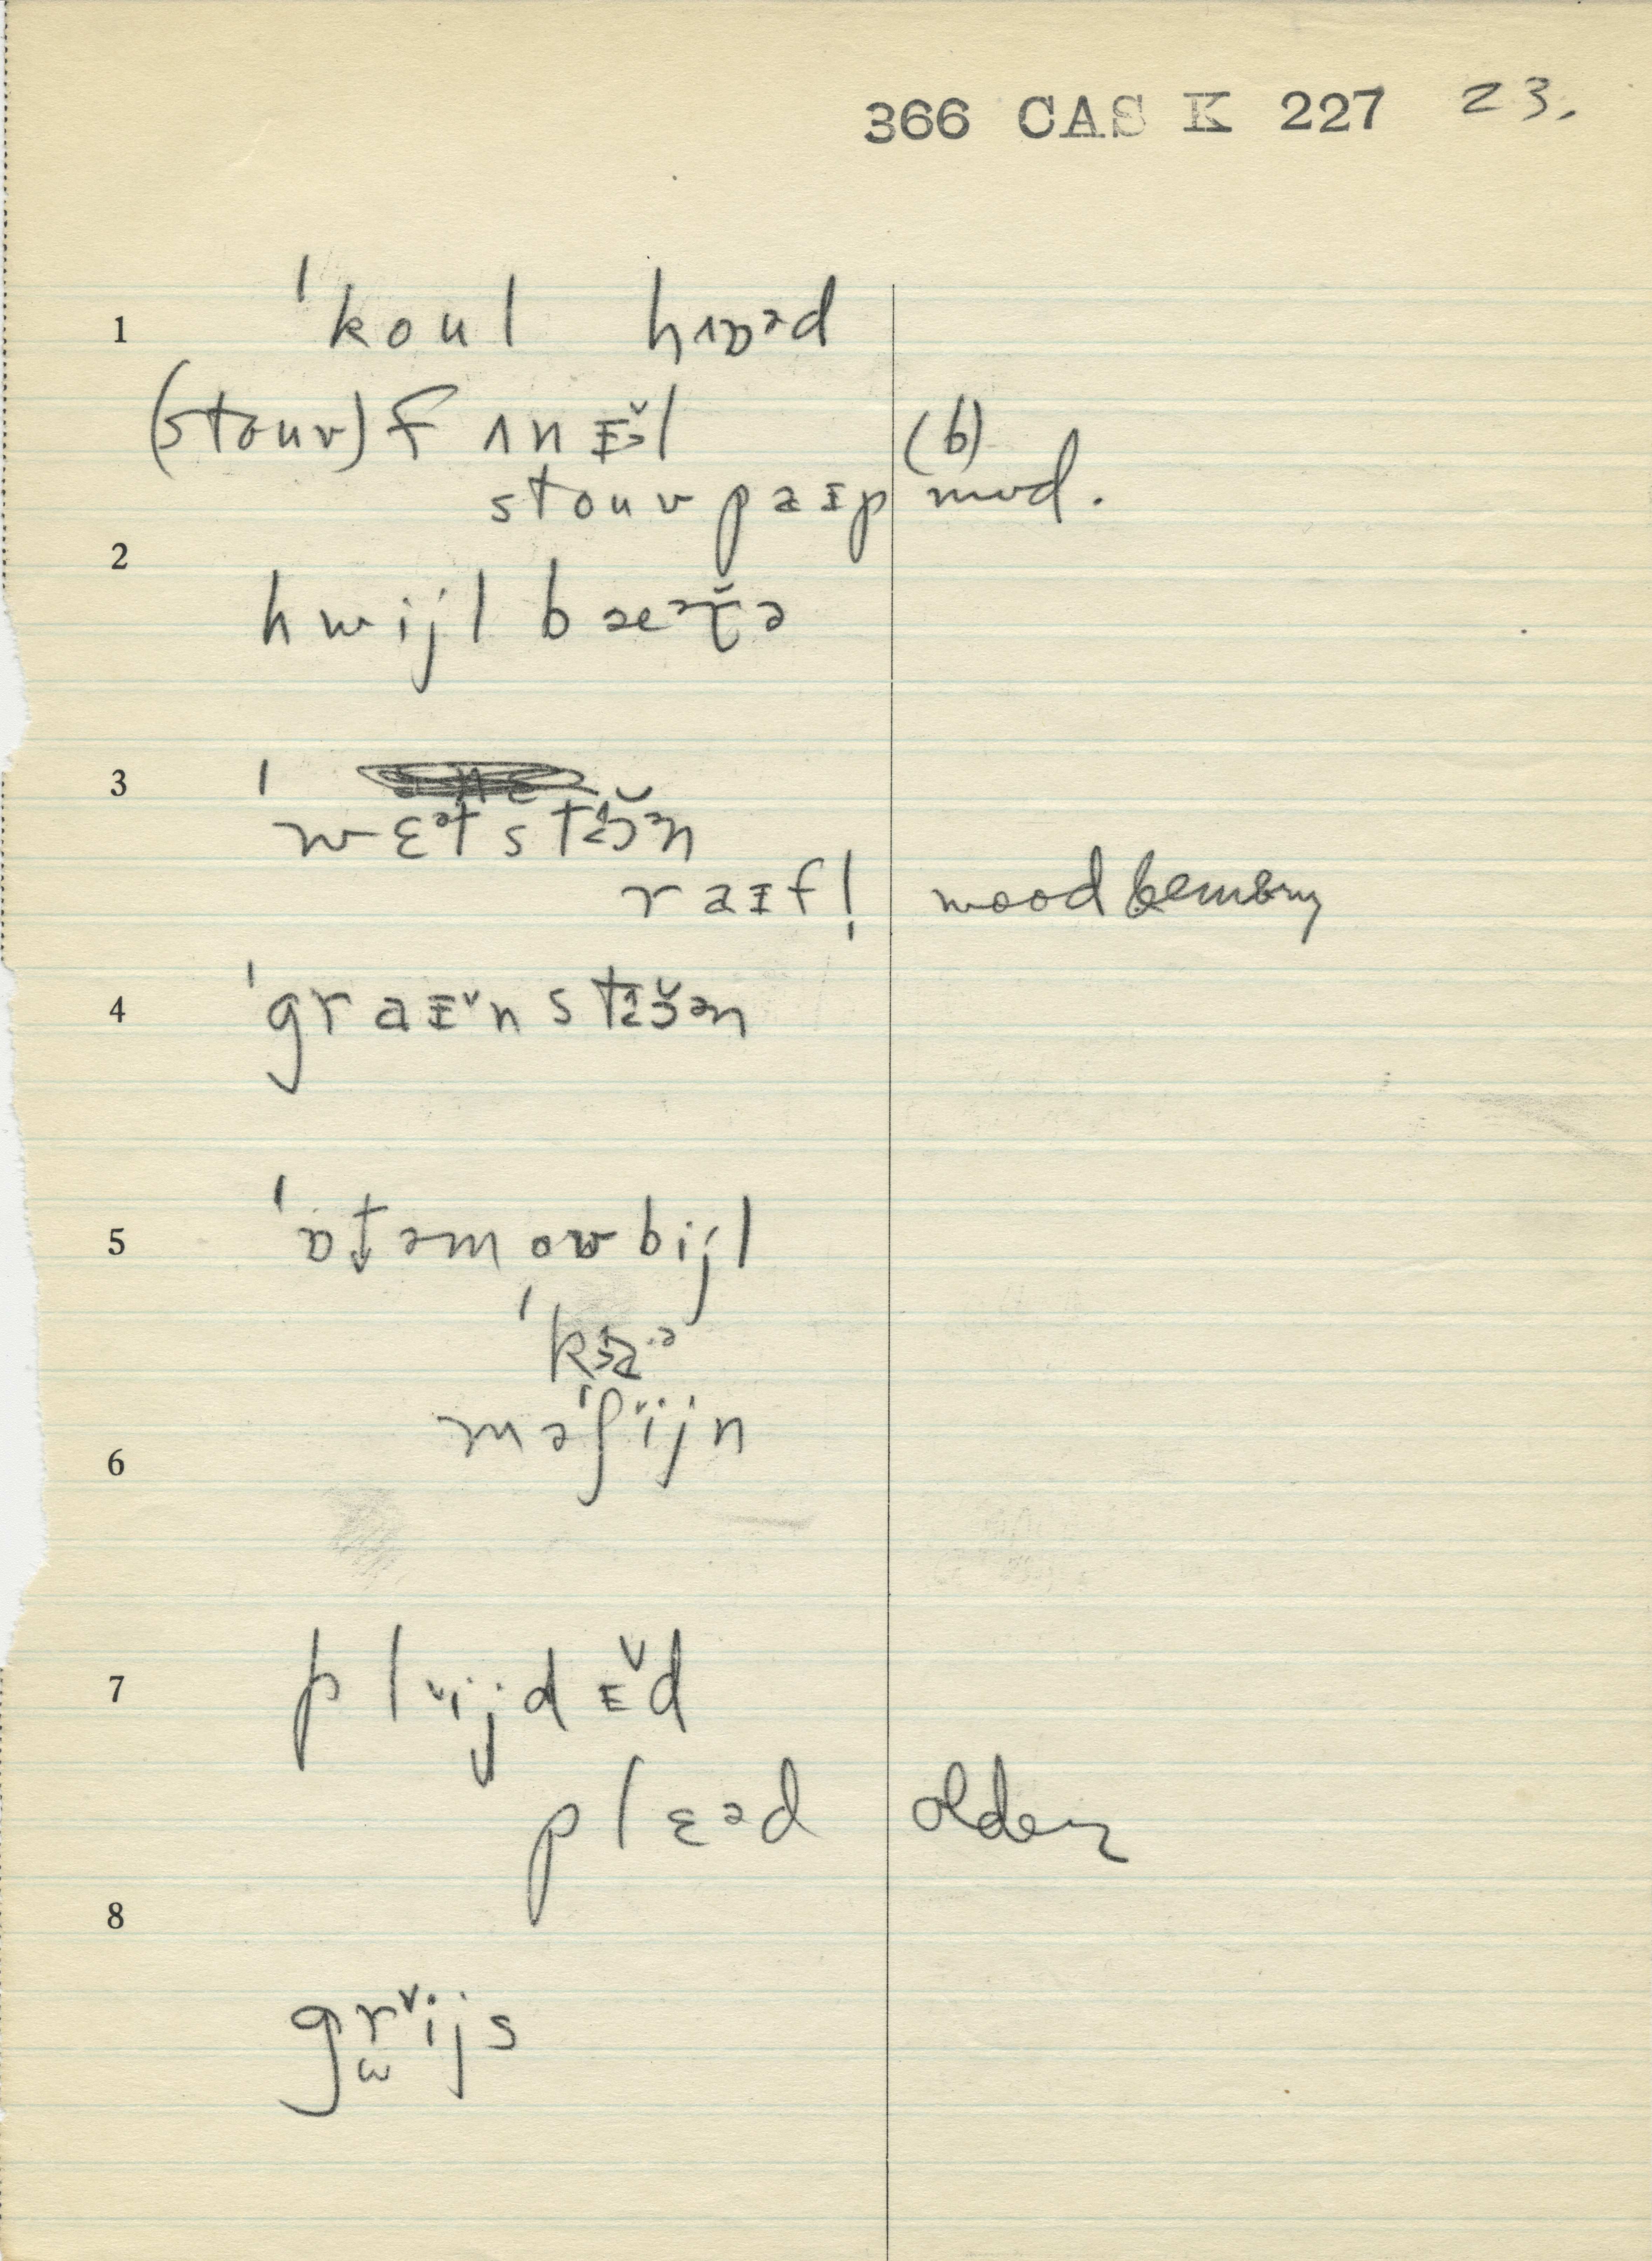 366 CAS K 227 23.
1 ˈkoul hɒᵊd
(stouv) f ʌnɪ̆l (b)
stouv paɪp mod.
2
hwijl bæᵊɾ̆ə
3 ˈwɛᵊtstɜ̆ᵊn
raɪf!
4 ˈgraɪ̆nstɜ̆ᵊn
5 ˈɒt̬əmowbijl
ˈkɑ·ᵊ
məˈʃijn
6
7 plijdɪ̆d
plɛəd older
8
grijs